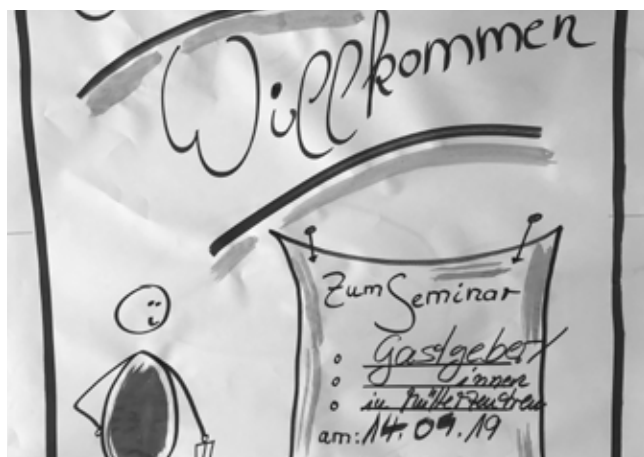 Willkommen
Zum Seminar
Gastgeber/
innen
in Mütterzentren
am: 14.09.19